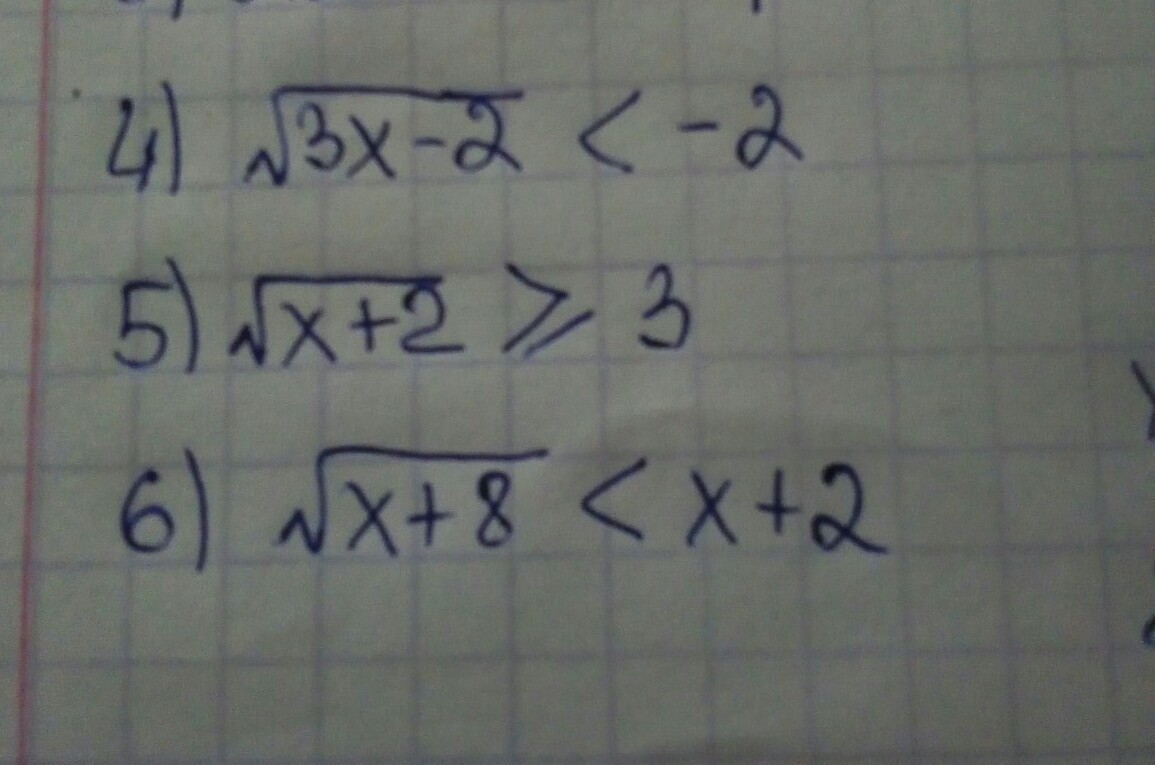 4) √3x-2 < -2
5) √x+2 ⩾ 3
6) √x+8 < x+2